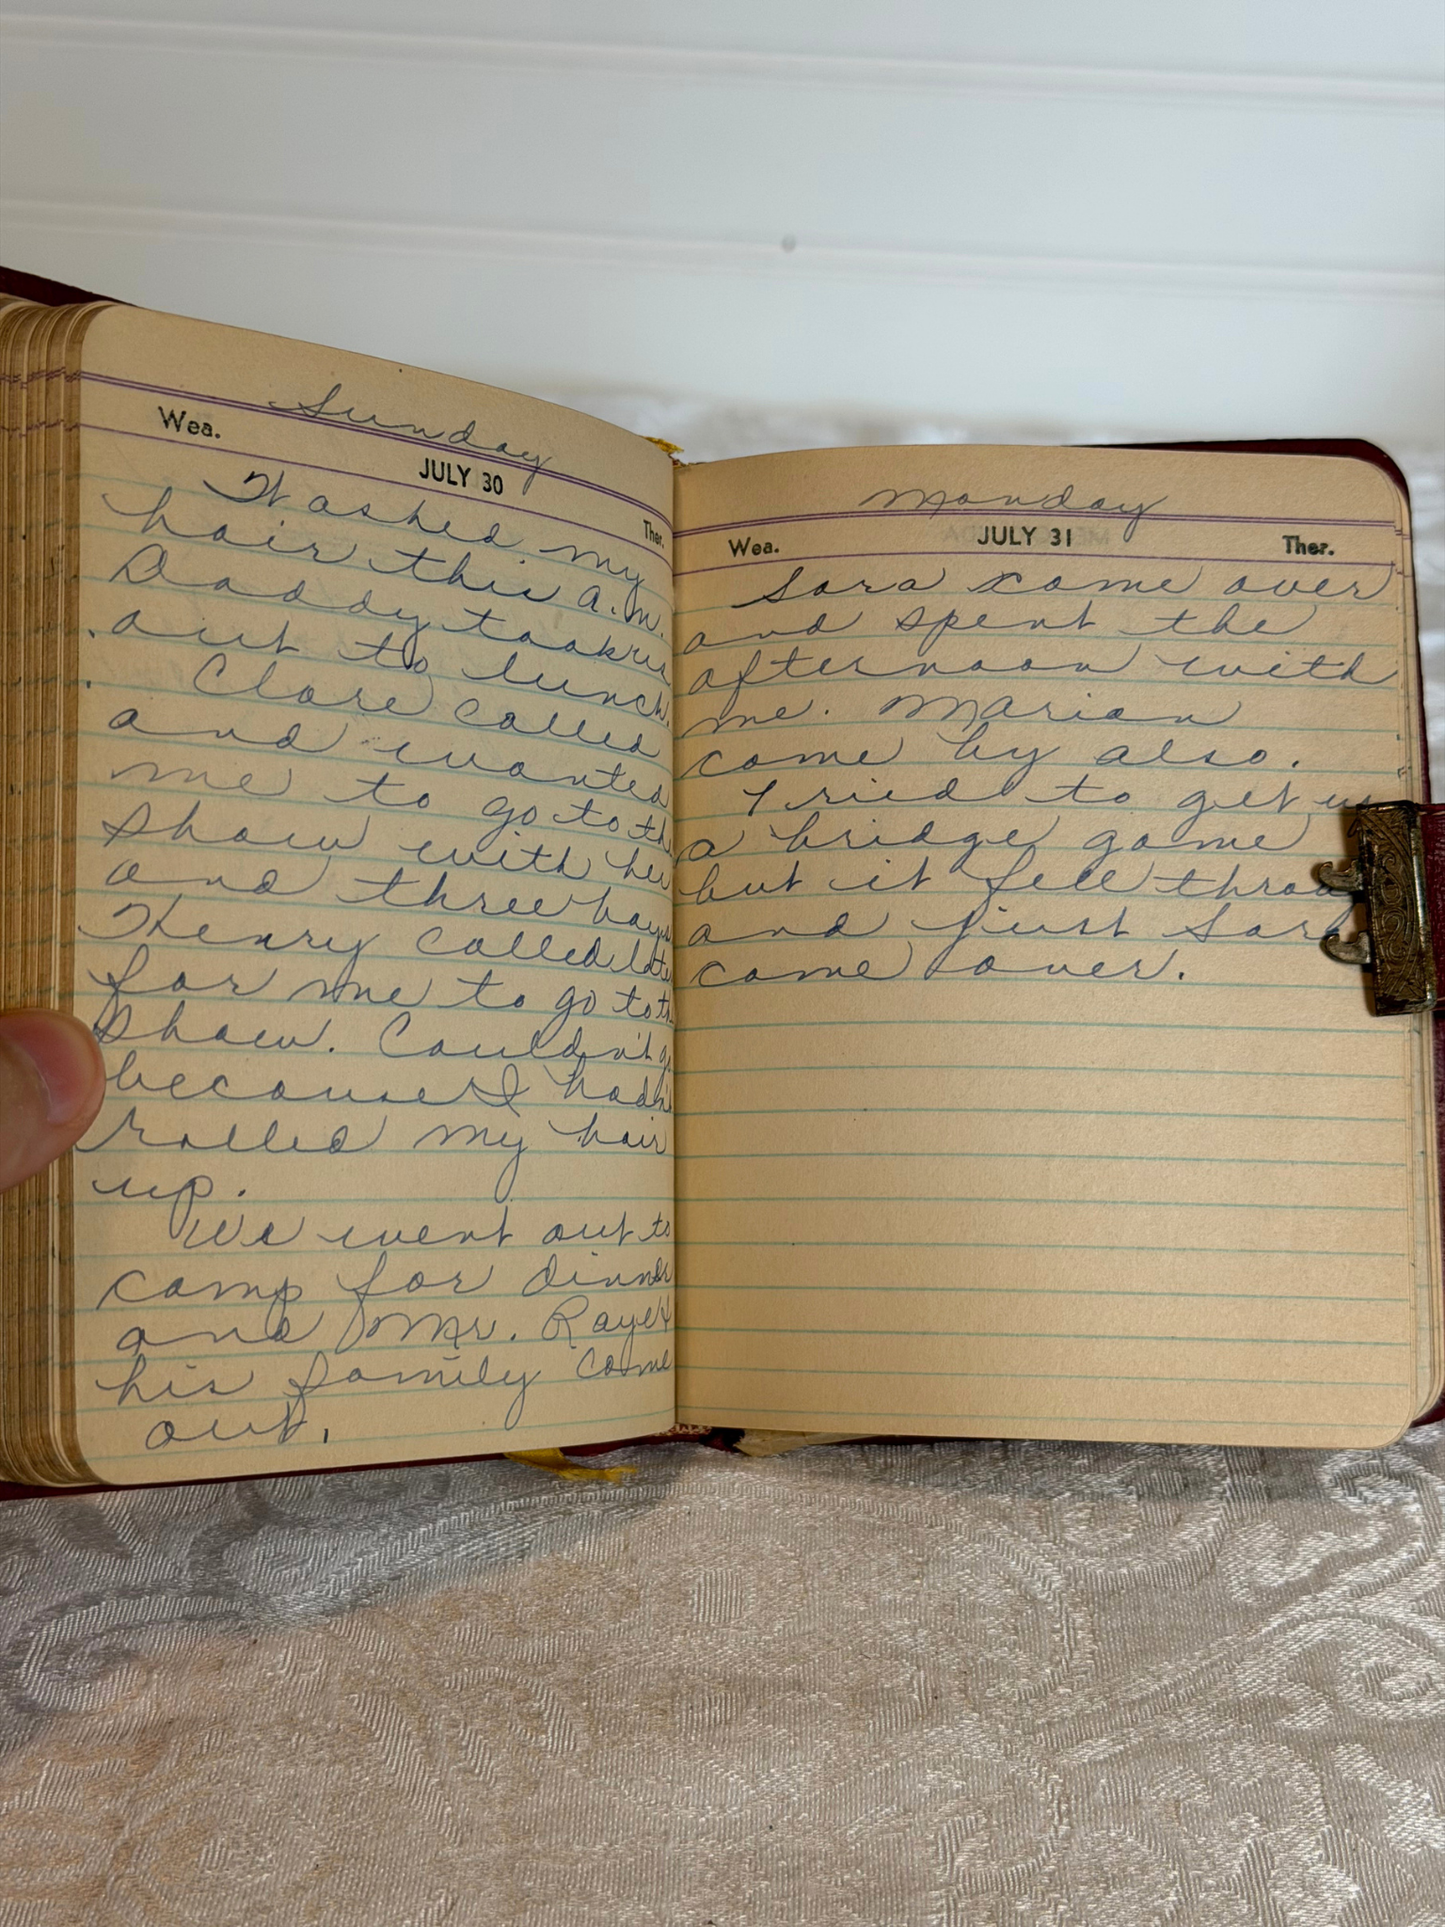 Sunday
Wea.
JULY 30
Ther.
Washed my
hair this a.m.
Daddy took us
out to lunch.
Clare called
and wanted
me to go to th
show with her
and three boys
Henry called late
for me to go to th
show. Couldn't g
because I hadn
rolled my hair
up.
We went out to
camp for dinner
and Mr. Raye &
his family come
out.
Monday
Wea.
JULY 31
Ther.
Sara come over
and spent the
afternoon with
me. Marian
come by also.
Tried to get u
a bridge game
but it fell throu
and just Sara
come over.